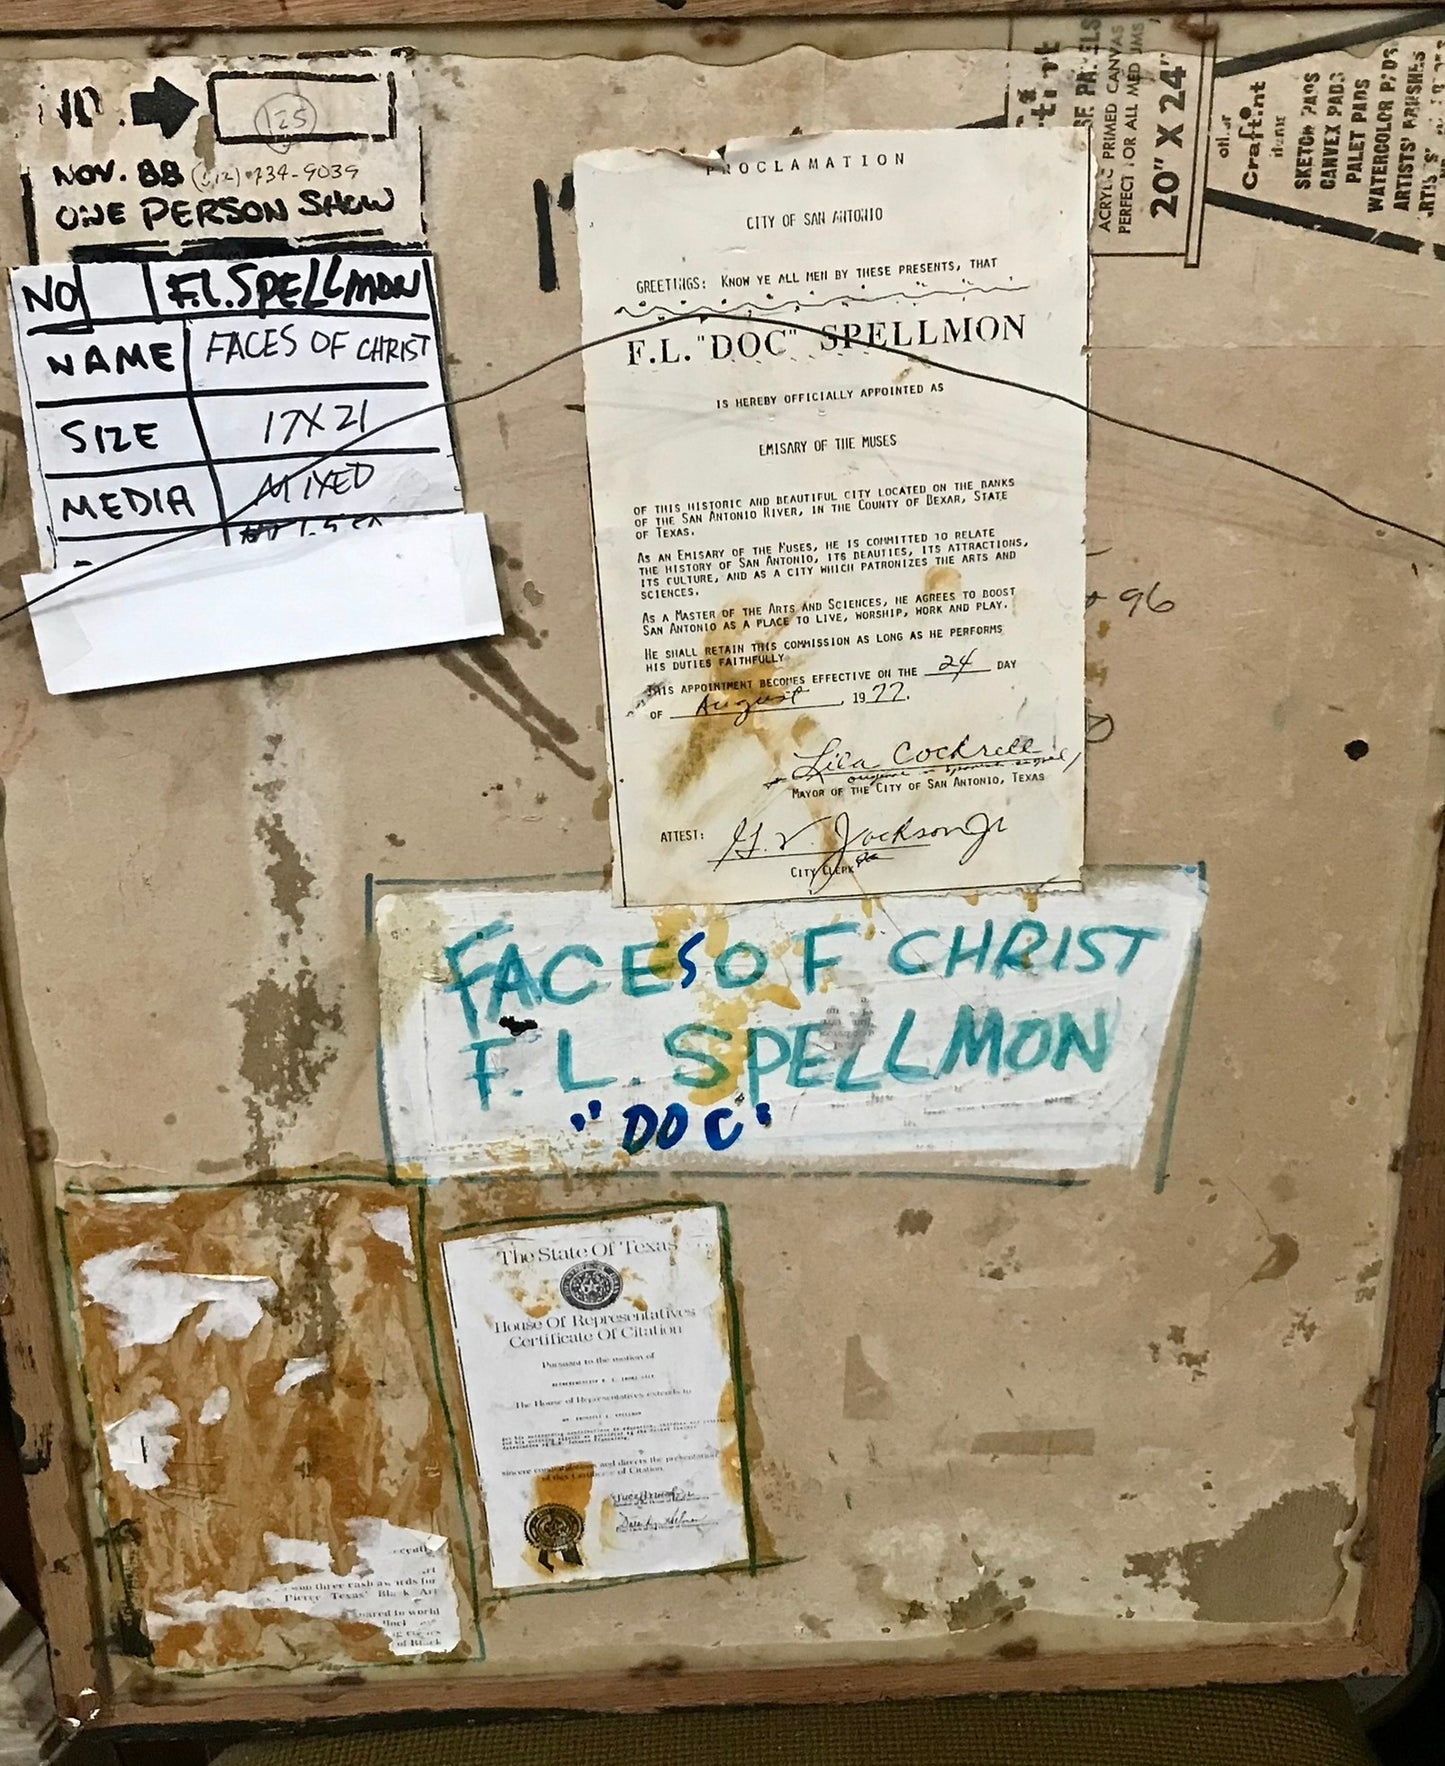 NO.
125
NOV. 88 (512) 734-9039
ONE PERSON SHOW
NO F.L. SPELLMON
NAME FACES OF CHRIST
SIZE 17X21
MEDIA MIXED
PROCLAMATION
CITY OF SAN ANTONIO
GREETINGS: KNOW YE ALL MEN BY THESE PRESENTS, THAT
F.L. "DOC" SPELLMON
IS HEREBY OFFICIALLY APPOINTED AS
EMISARY OF THE MUSES
OF THIS HISTORIC AND BEAUTIFUL CITY LOCATED ON THE BANKS
OF THE SAN ANTONIO RIVER, IN THE COUNTY OF BEXAR, STATE
OF TEXAS.
AS AN EMISARY OF THE MUSES, HE IS COMMITTED TO RELATE
THE HISTORY OF SAN ANTONIO, ITS BEAUTIES, ITS ATTRACTIONS,
ITS CULTURE, AND AS A CITY WHICH PATRONIZES THE ARTS AND
SCIENCES.
AS A MASTER OF THE ARTS AND SCIENCES, HE AGREES TO BOOST
SAN ANTONIO AS A PLACE TO LIVE, WORSHIP, WORK AND PLAY.
HE SHALL RETAIN THIS COMMISSION AS LONG AS HE PERFORMS
HIS DUTIES FAITHFULLY
THIS APPOINTMENT BECOMES EFFECTIVE ON THE 24 DAY
OF August, 1977.
Lila Cockrell
MAYOR OF THE CITY OF SAN ANTONIO, TEXAS
ATTEST: G. V. Jackson Jr
CITY CLERK
ACRYLIC PRIMED CANVAS
PERFECT FOR ALL MEDIUMS
20" X 24"
Craftint
SKETCH PADS
CANVEX PADS
PALET PADS
WATERCOLOR PADS
ARTISTS' BRUSHES
96
FACES OF CHRIST
F. L. SPELLMON
"DOC"
The State Of Texas
House Of Representatives
Certificate Of Citation
Pursuant to the motion of
The House of Representatives extends to
sincere congratulations and directs the presentation
of this Certificate of Citation
won three cash awards for
Pierce Texas' Black Art
to world
of Black